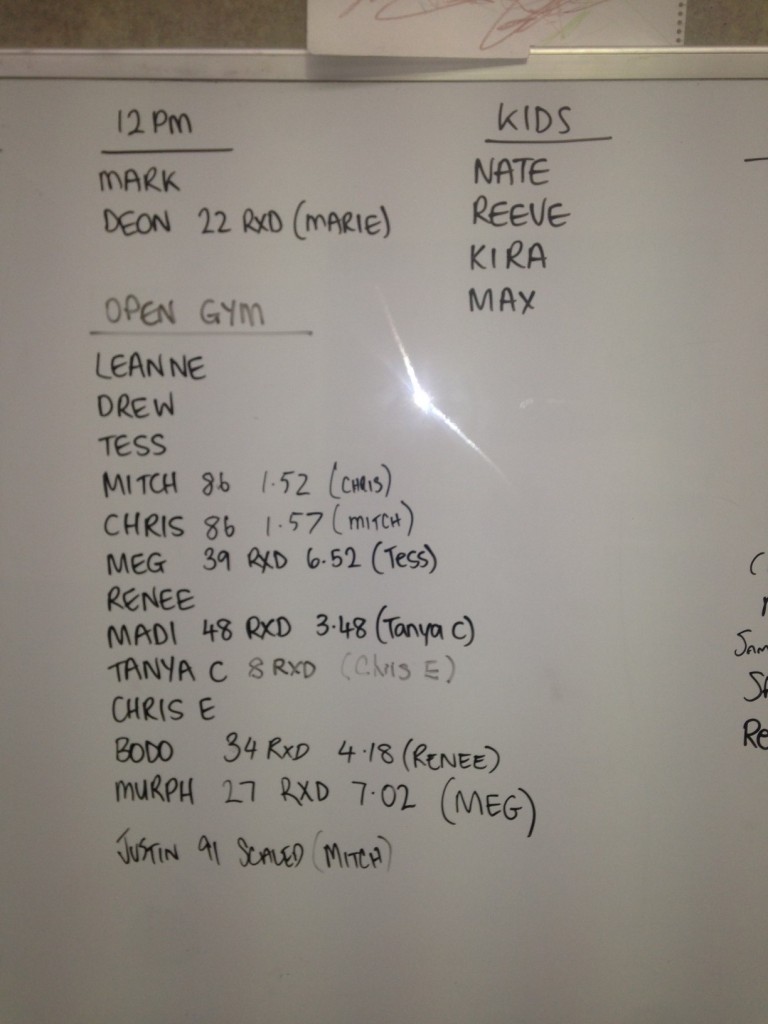 12PM
MARK
DEON 22 RXD (MARIE)
OPEN GYM
LEANNE
DREW
TESS
MITCH 86 1.52 (CHRIS)
CHRIS 86 1.57 (MITCH)
MEG 39 RXD 6.52 (Tess)
RENEE
MADI 48 RXD 3.48 (Tanya C)
TANYA C 8 RXD (Chris E)
CHRIS E
BODO 34 RXD 4.18 (RENEE)
MURPH 27 RXD 7.02 (MEG)
JUSTIN 91 SCALED (MITCH)
KIDS
NATE
REEVE
KIRA
MAX